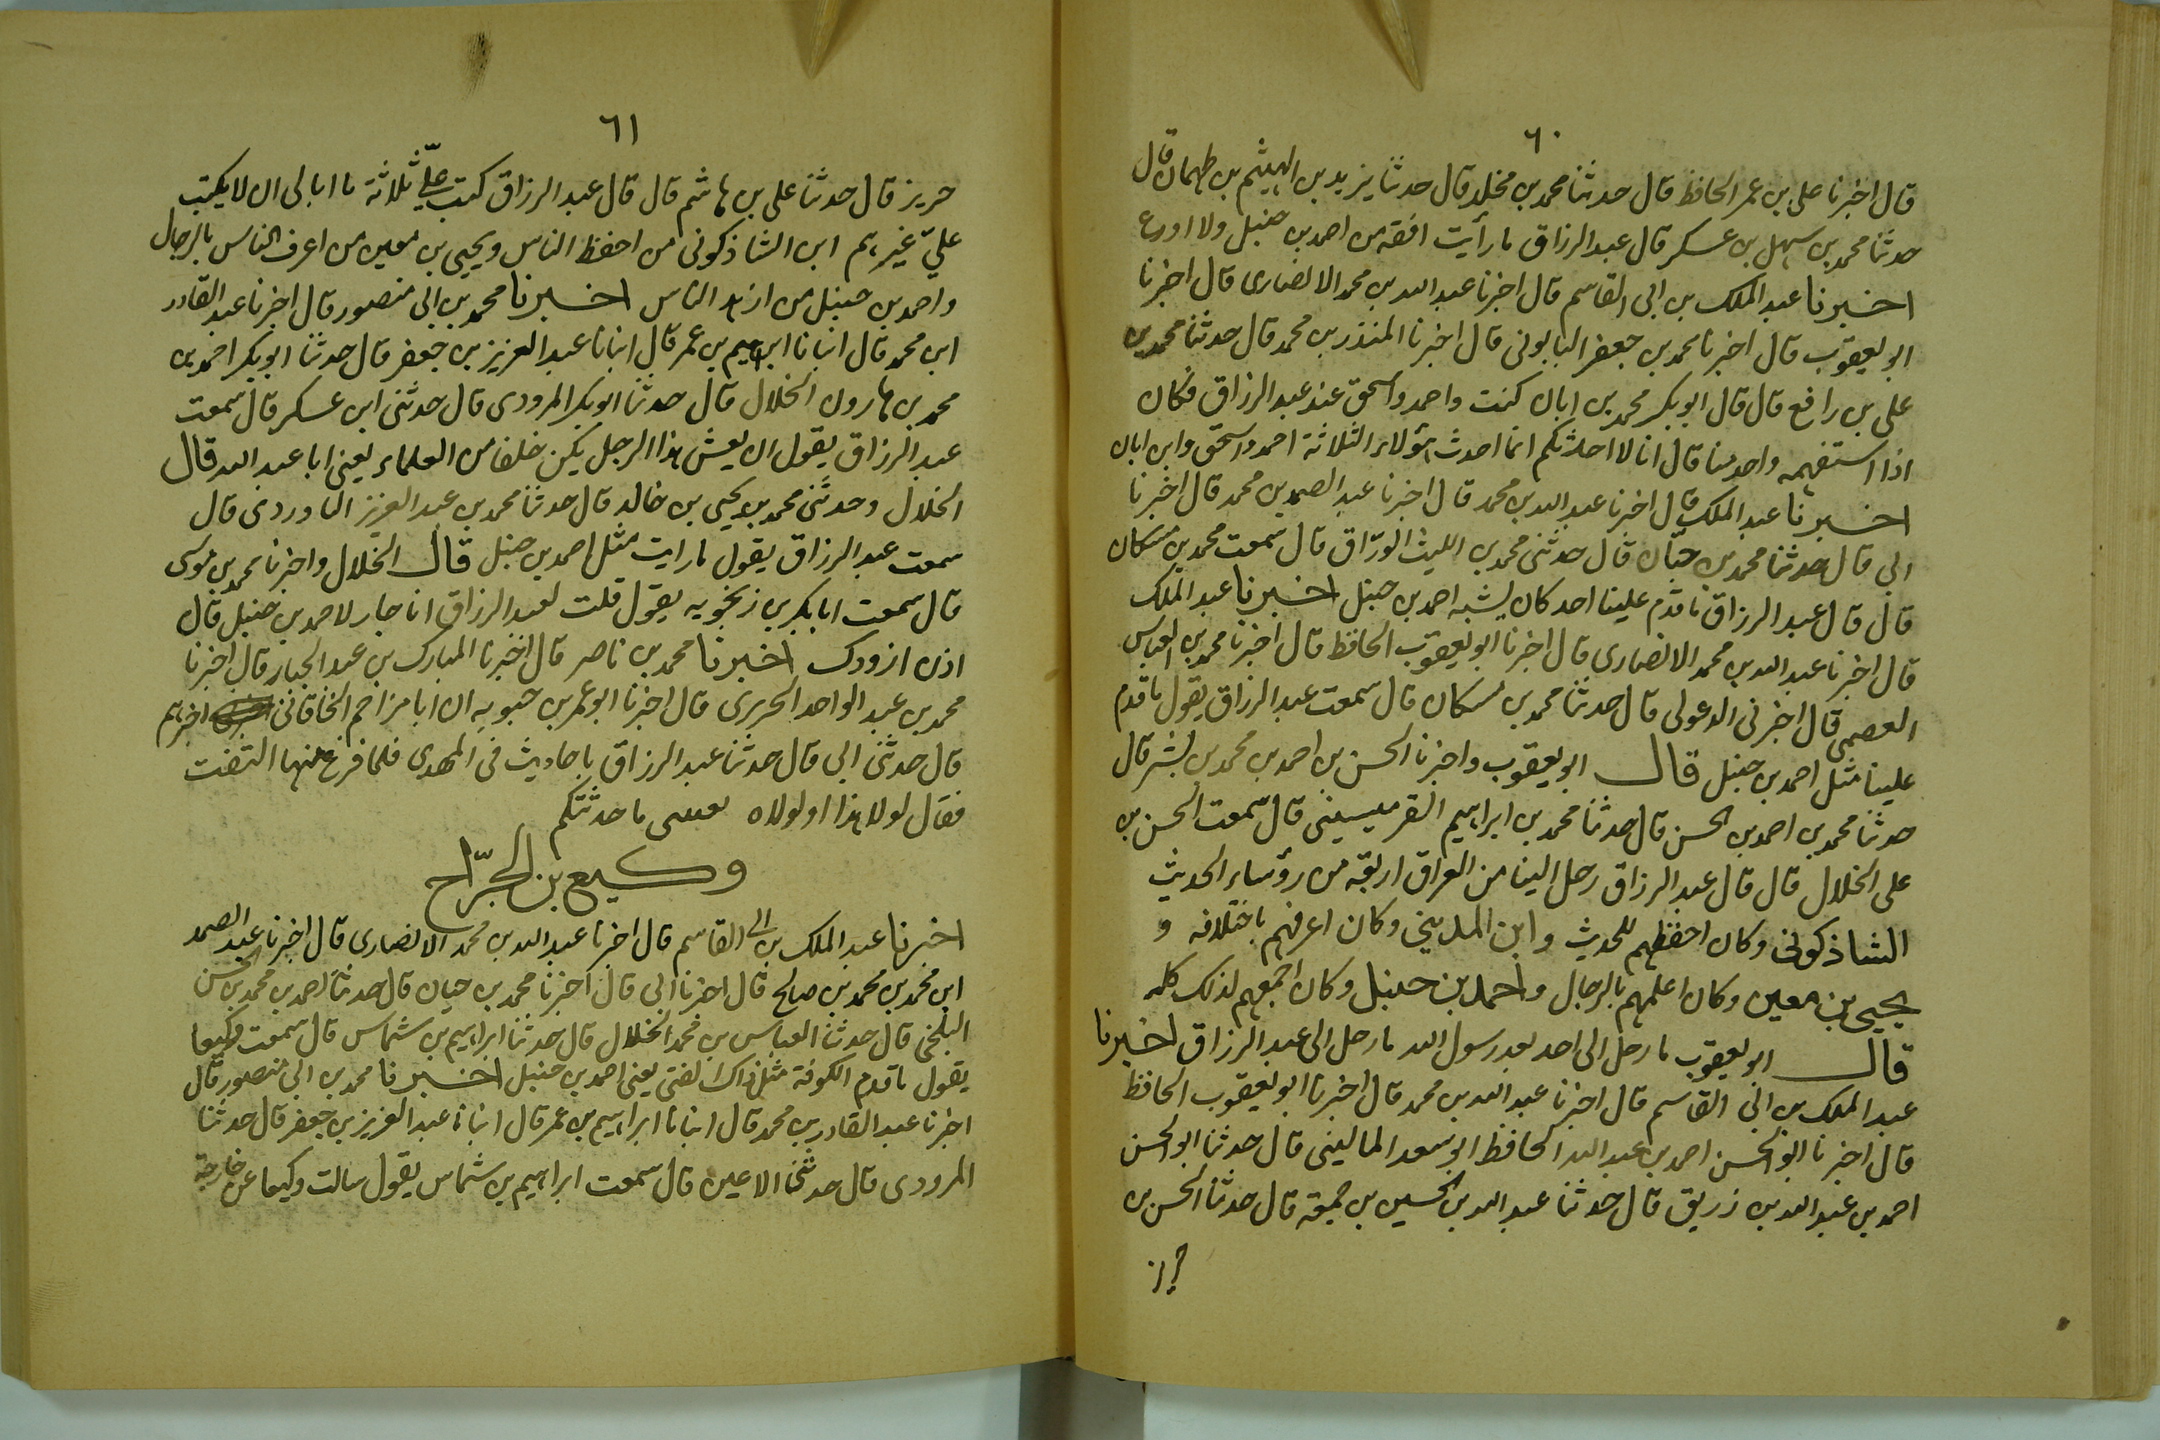 ٦٠
قال اخبرنا على بن عمر الحافظ قال حدثنا محمد بن مخلد قال حدثنا يزيد بن الهيثم بن طهمان قال
حدثنا محمد بن سهل بن عسكر قال عبد الرزاق ما رأيت افقه من احمد بن حنبل ولا اورع
اخبرنا عبد الملك بن ابى القاسم قال اخبرنا عبد الله بن محمد الانصارى قال اخبرنا
ابو يعقوب قال اخبرنا محمد بن جعفر البابونى قال اخبرنا المنذر بن محمد قال حدثنا محمد بن
على بن رافع قال قال ابو بكر محمد بن ابان كنت واحمد واسحق عند عبد الرزاق فكان
اذا استفهمه واحد منا قال انا لا احدثكم انما احدث هؤلاء الثلاثة احمد واسحق وابن ابان
اخبرنا عبد الملك قال اخبرنا عبد الله بن محمد قال اخبرنا عبد الصمد بن محمد قال اخبرنا
ابى قال حدثنا محمد بن حبّان قال حدثنى محمد بن الليث الورّاق قال سمعت محمد بن مسكان
قال قال عبد الرزاق ما قدم علينا احد كان يشبه احمد بن حنبل اخبرنا عبد الملك
قال اخبرنا عبد الله بن محمد الانصارى قال اخبرنا ابو يعقوب الحافظ قال اخبرنا محمد بن العباس
العصمى قال اخبرنى الدعولى قال حدثنا محمد بن مسكان قال سمعت عبد الرزاق يقول ما قدم
علينا مثل احمد بن حنبل قال ابو يعقوب واخبرنا الحسن بن احمد بن محمد بن بشر قال
حدثنا محمد بن احمد بن الحسن قال حدثنا محمد بن ابراهيم القرميسينى قال سمعت الحسن بن
على الخلال قال قال عبد الرزاق رحل الينا من العراق اربعة من رؤساء الحديث
الشاذكونى وكان احفظهم للحديث وابن المدينى وكان اعرفهم باختلافه و
يحيى بن معين وكان اعلمهم بالرجال واحمد بن حنبل وكان اجمعهم لذلك كله
قال ابو يعقوب ما رحل الى احد بعد رسول الله ما رحل الى عبد الرزاق اخبرنا
عبد الملك بن ابى القاسم قال اخبرنا عبد الله بن محمد قال اخبرنا ابو يعقوب الحافظ
قال اخبرنا ابو الحسن احمد بن عبد الله الحافظ ابو سعد المالينى قال حدثنا ابو الحسن
احمد بن عبد الله بن زريق قال حدثنا عبد الله بن الحسين بن جميعة قال حدثنا الحسن بن
٦١
حريز قال حدثنا على بن هاشم قال قال عبد الرزاق كتب علّى ثلاثة ما ابالى ان لا يكتب
علىّ غيرهم ابن الشاذكونى من احفظ الناس ويحيى بن معين من اعرف الناس بالرجال
واحمد بن حنبل من ازهد الناس اخبرنا محمد بن ابى منصور قال اخبرنا عبد القادر
ابن محمد قال انبانا ابراهيم بن عمر قال انبانا عبد العزيز بن جعفر قال حدثنا ابو بكر احمد بن
محمد بن هارون الخلال قال حدثنا ابو بكر المرودى قال حدثنى ابن عسكر قال سمعت
عبد الرزاق يقول ان يعش هذا الرجل يكن خلفا من العلماء يعنى ابا عبد الله قال
الخلال وحدثنى محمد بن يحيى بن خالد قال حدثنا محمد بن عبد العزيز الباوردى قال
سمعت عبد الرزاق يقول ما رايت مثل احمد بن حنبل قال الخلال واخبرنا محمد بن موسى
قال سمعت ابا بكر بن زنجويه يقول قلت لعبد الرزاق انا جار لاحمد بن حنبل قال
اذن ازودك اخبرنا محمد بن ناصر قال اخبرنا المبارك بن عبد الجبار قال اخبرنا
محمد بن عبد الواحد الحريرى قال اخبرنا ابو عمر بن حيويه ان ابا مزاحم الخاقانى اخبرهم
قال حدثنى ابى قال حدثنا عبد الرزاق باحاديث فى المهدى فلما فرغ منها التفت
فقال لولا هذا او لولاه يعنى ما حدثتكم
وكيع بن الجرّاح
اخبرنا عبد الملك بن ابى القاسم قال اخبرنا عبد الله بن محمد الانصارى قال اخبرنا عبد الصمد
ابن محمد بن محمد بن صالح قال اخبرنا ابى قال اخبرنا محمد بن حبان قال حدثنا احمد بن محمد بن الحسن
البلخى قال حدثنا العباس بن محمد الخلال قال حدثنا ابراهيم بن شماس قال سمعت وكيعا
يقول ما قدم الكوفة مثل ذاك الفتى يعنى احمد بن حنبل اخبرنا محمد بن ابى منصور قال
اخبرنا عبد القادر بن محمد قال انبانا ابراهيم بن عمر قال انبانا عبد العزيز بن جعفر قال حدثنا
المرودى قال حدثنا الاعين قال سمعت ابراهيم بن شماس يقول سالت وكيعا عن خارجة